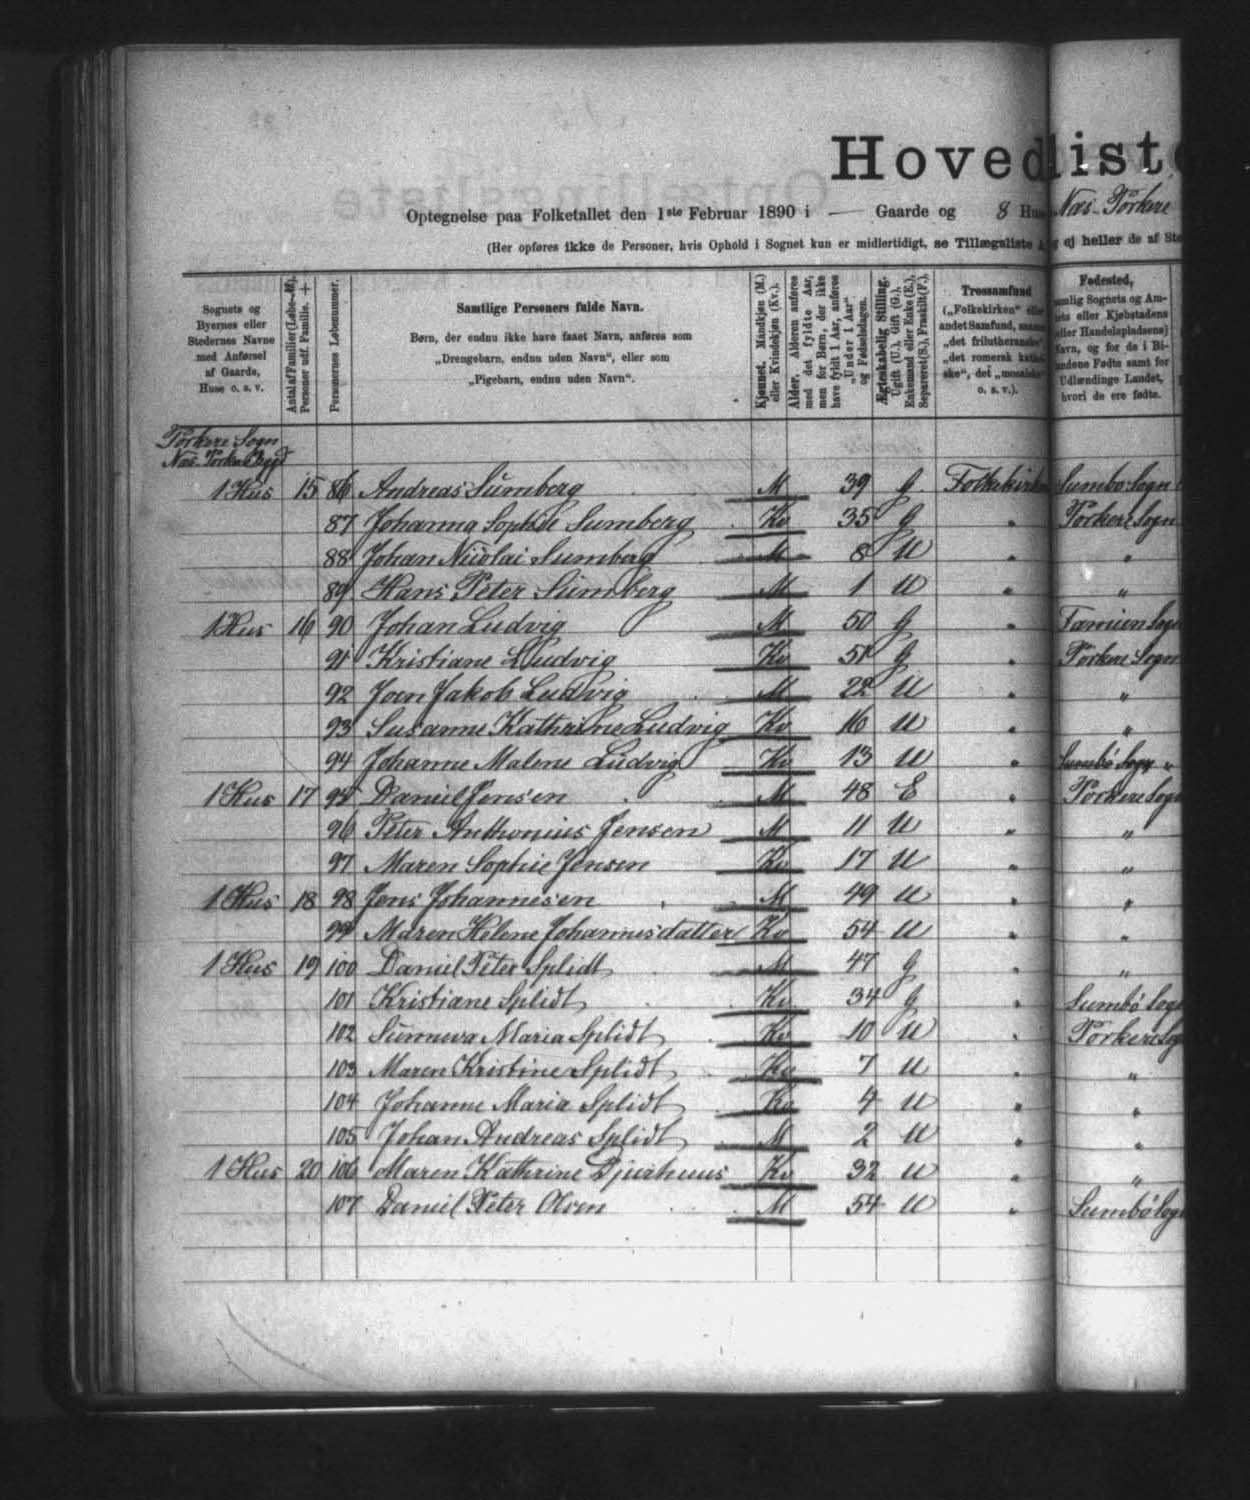 Hovedliste
Optegnelse paa Folketallet den 1ste Februar 1890 i — Gaarde og 8 Hus Næs-Porkere
(Her opføres ikke de Personer, hvis Ophold i Sognet kun er midlertidigt, se Tillægsliste ej heller de af
Sognets og Byernes eller Stedernes Navne med Anførsel af Gaarde, Huse o. s. v.
Antal af Familier (Løbe-№). Personer udf. Familie. +
Personernes Løbenummer.
Samtlige Personers fulde Navn.
Børn, der endnu ikke have faaet Navn, anføres som
„Drengebarn, endnu uden Navn“, eller som
„Pigebarn, endnu uden Navn“.
Kjønnet. Mandkjøn (M.) eller Kvindekjøn (Kv.).
Alder. Alderen anføres med det fyldte Aar, men for Børn, der ikke have fyldt 1 Aar, anføres „Under 1 Aar“ og Fødselsdagen.
Ægteskabelig Stilling. Ugift (U.), Gift (G.), Enkemand eller Enke (E.), Separeret (S.), Fraskilt (F.).
Trossamfund
(„Folkekirken“
andet Samfund,
„det frilutheranske“
„det romersk
ske“, det „mosaiske“
o. s. v.).
Fødested,
Sognets og Am-
eller Kjøbstadens
eller Handelspladsens)
Navn, og for de i Bi-
landene Fødte samt for
Udlændinge Landet,
hvori de ere fødte.
Porkere Sogn
Næs-Porkere Bygd
1 Hus 15 86 Andreas Sumberg M 39 G Folkekirken Sumbø Sogn
87 Johanna Sophie Sumberg Kv 35 G " Porkere Sogn
88 Johan Nicolai Sumberg M 8 U " "
89 Hans Peter Sumberg M 1 U " "
1 Hus 16 90 Johan Ludvig M 50 G " Famien Sogn
91 Kristiane Ludvig Kv 51 G " Porkere Sogn
92 Joen Jakob Ludvig M 22 U " "
93 Susanne Kathrine Ludvig Kv 16 U " "
94 Johanne Malene Ludvig Kv 13 U " Sumbø Sogn "
1 Hus 17 95 Daniel Jensen M 48 E " Porkere Sogn
96 Peter Anthonius Jensen M 11 U " "
97 Maren Sophie Jensen Kv 17 U " "
1 Hus 18 98 Jens Johannesen M 49 U " "
99 Maren Helene Johannesdatter Kv 54 U " "
1 Hus 19 100 Daniel Peter Splidt M 47 G " "
101 Kristiane Splidt Kv 34 G " Sumbø Sogn
102 Sunneva Maria Splidt Kv 10 U " Porkere Sogn
103 Maren Kristine Splidt Kv 7 U " "
104 Johanne Maria Splidt Kv 4 U " "
105 Johan Andreas Splidt M 2 U " "
1 Hus 20 106 Maren Kathrine Djurhuus Kv 32 U " "
107 Daniel Peter Olsen M 54 U " Sumbø Sogn